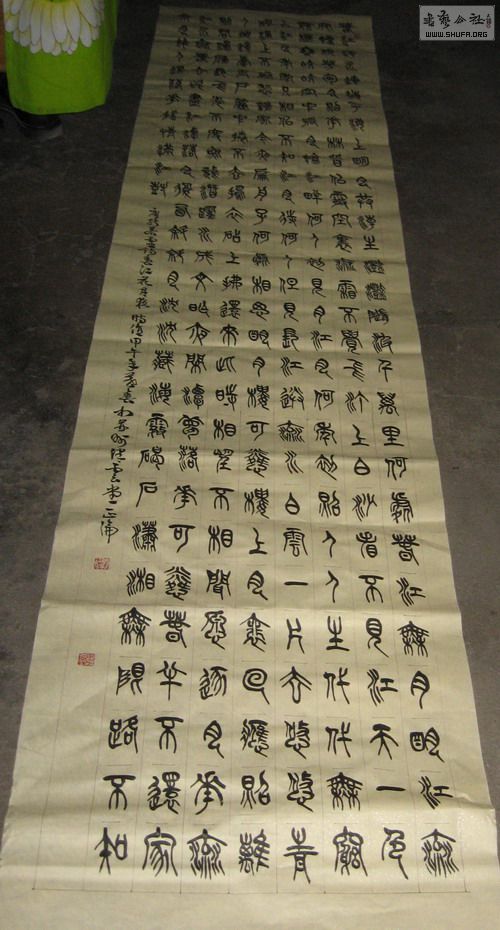 春江潮水連海平海上明月共潮生灩灩隨波千萬里何處春江無月明江流
宛轉繞芳甸月照花林皆似霰空裏流霜不覺飛汀上白沙看不見江天一色
無纖塵皎皎空中孤月輪江畔何人初見月江月何年初照人人生代代無窮
已江月年年望相似不知江月待何人但見長江送流水白雲一片去悠悠青
楓浦上不勝愁誰家今夜扁舟子何處相思明月樓可憐樓上月裴回應照離
人妝鏡臺玉戶簾中捲不去擣衣砧上拂還來此時相望不相聞願逐月華流
照君鴻雁長飛光不度魚龍潛躍水成文昨夜閒潭夢落花可憐春半不還家
江水流春去欲盡江潭落月復西斜斜月沈沈藏海霧碣石瀟湘無限路不知
乘月幾人歸落月搖情滿江樹
春江花月夜時值甲午年
WWW.SHUFA.ORG